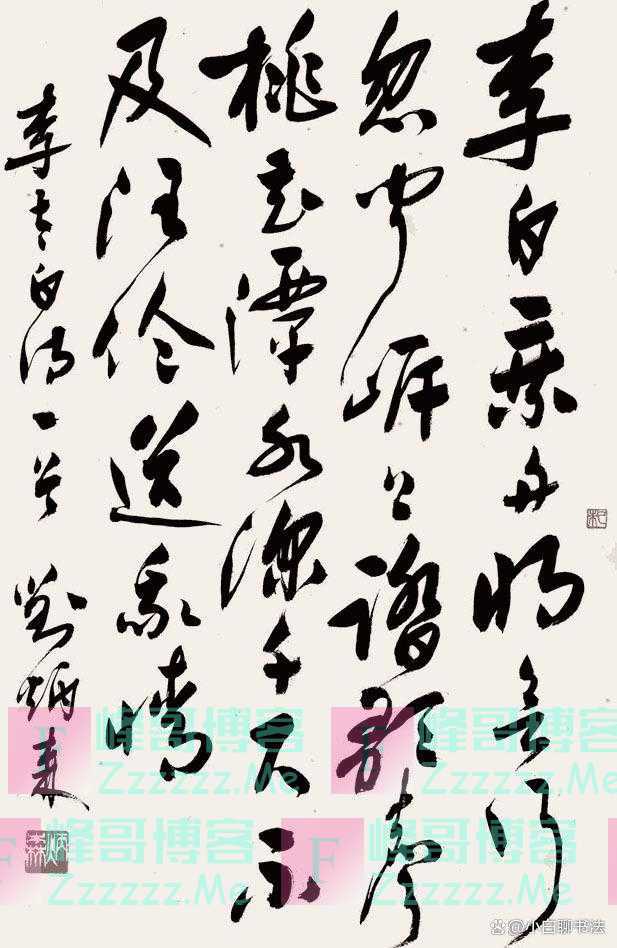 李白乘舟將欲行
忽聞岸上踏歌聲
桃花潭水深千尺不
及汪倫送我情
李太白詩一首 劉炳森
炳森
F 峰哥博客 F 峰哥博客
Zzzzzz.Me Zzzzzz.Me
峰哥博客 F 峰哥博客
Zzzzzz.Me Zzzzzz.Me
@小白聊书法